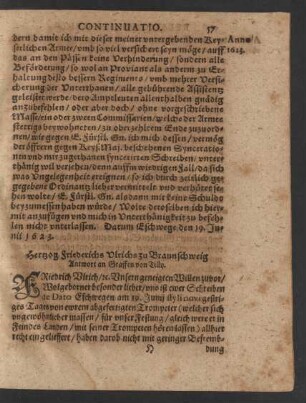 CONTINUATIO. 57
dern damit ich mit dieser meiner untergebenen Key-
serlichen Armee/ umb so viel versichert seyn möge/ auff
das an den Pässen keine Verhinderung/ sondern alle
Beförderung/ so wol an Proviant als anderm zu Er-
haltung desto bessern Regiments/ umb mehrer Versi-
cherung der Unterthanen/ alle gebührende Assistentz
geleistet werde/ dero Amptleuten allenthalben gnädig
anzubefehlen/ oder aber doch/ ohne vorgeschriebene
Mass/ ein oder zween Commissarien/ welche der Armee
stettigs beywohneten/ zu oder zehlrem Ende zuzuord-
nen/ wie gegen E. Fürstl. Gn. ich mich dessen/ vermög
der offtern gegen Keys. Maj. beschehenen
und mir zugethanen Schreiben/ unter-
thänig will versehen/ denn auff den widrigen Fall/ da sich
was Ungelegenheit ereignen/ so ich durch zeitlich
gegebene Ordinantz lieber vermitteln und verhütet se-
hen wolte/ E. Fürstl. Gn. alsdann mir keine Schuld
beyzumessen haben würde/ Wolte derselben ich hiemit
zufügen und mich in Unterthänigkeit zu befeh-
len nicht unterlassen. Datum Eschwege den 19. Ju-
nii 1623.
Anno
1623.
Hertzog Friederichs Ulrichs zu Braunschweig
Antwort an Graffen von Tilly.
FRiedrich Ulrich/ etc. Unsern geneigten Willen zuvor/
Wolgeborner besonder lieber/ uns ist ewer Schreiben
de Dato Eschwegen am 19. Junii
Tages von ewrem abgefertigten Trompeter (welcher sich
ungewöhnlicher massen/ für unser Festung/ gleich were er in
Feindes Landen/ mit seiner Trompeten hören lassen) allhier
recht eingelieffert/ haben darob nicht mit geringer Befremb-
H dung